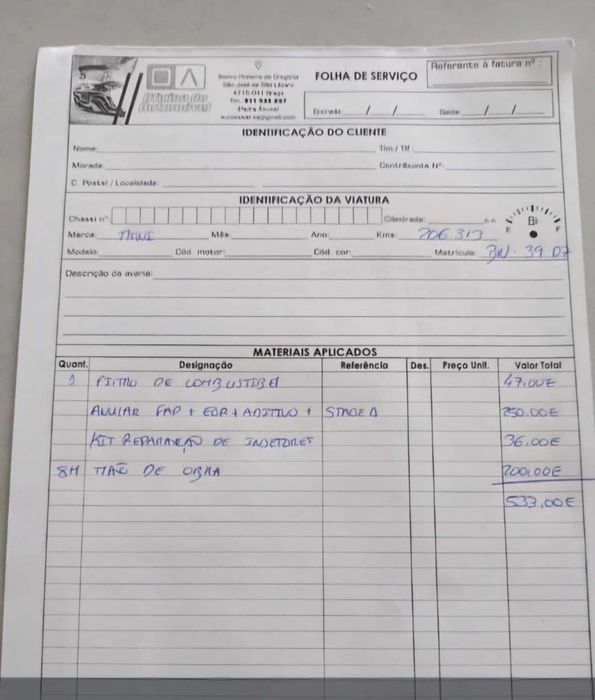 FOLHA DE SERVIÇO
Referente à fatura nº :
Oficina do Automóvel
4710-011 Braga
Entrada: / / Saída: / /
IDENTIFICAÇÃO DO CLIENTE
Nome: Tlm / Tlf:
Morada: Contribuinte Nº:
C. Postal / Localidade:
IDENTIFICAÇÃO DA VIATURA
Chassi nº: Cilindrada: c.c. E F
Marca: Mês: Ano: Kms: 206 313
Modelo: Cód. motor: Cód. cor: Matrícula: BN-39-07
Descrição da avaria:
MATERIAIS APLICADOS
Quant. Designação Referência Des. Preço Unit. Valor Total
1 FILTRO DE COMBUSTIBEL 47.00€
ANULAR FAP + EGR + ADITIVO + STAGE 1 250.00€
KIT REPARAÇÃO DE INJETORES 36,00€
8H MÃO DE OBRA 200,00€
533,00€